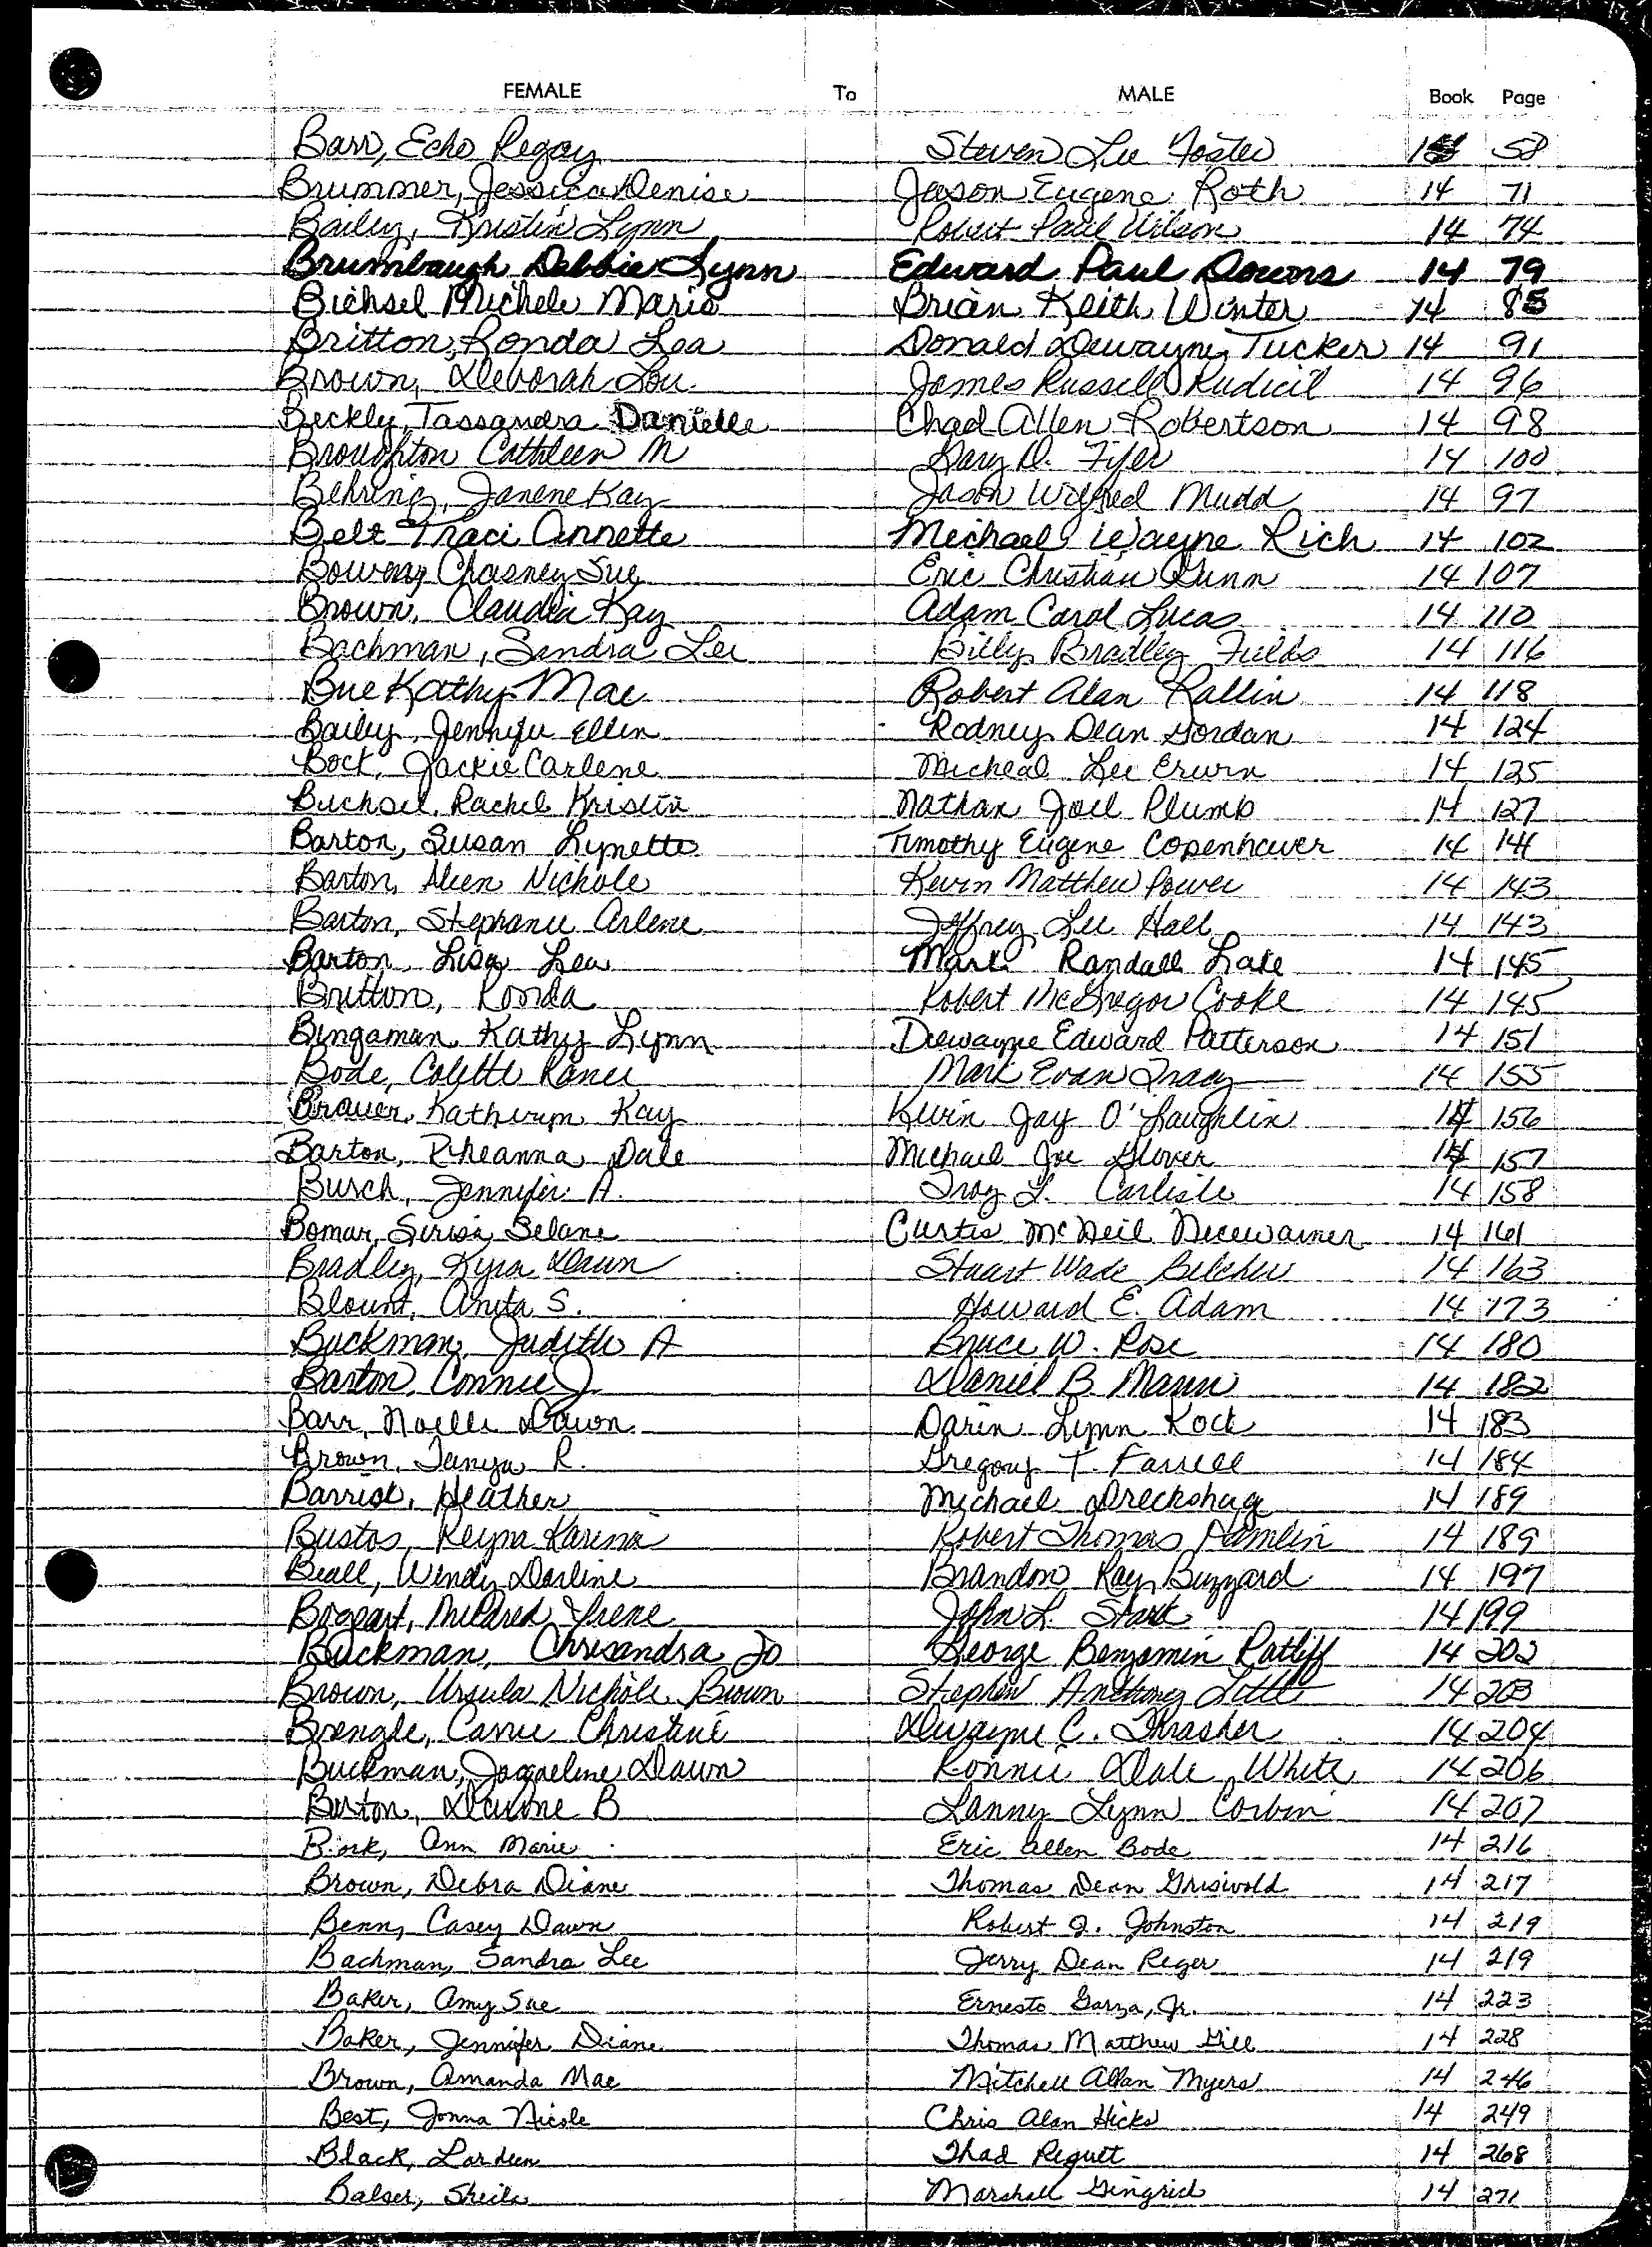 FEMALE To MALE Book Page
Barr, Echo Regay Steven Lee Foster 14 58
Brummer, Jessica Denise Jason Eugene Roth 14 71
Bailey, Kristin Lynn Robert Paul Wilson 14 74
Brumbaugh Debbie Lynn Edward Paul Downs 14 79
Bichsel Michele Marie Brian Keith Winter 14 85
Britton, Ronda Lea Donald Dewayne Tucker 14 91
Brown, Deborah Lou James Russell Rudicil 14 96
Beckly, Tassandra Danielle Chad Allen Robertson 14 98
Broughton Cathleen M Gary D. Fifer 14 100
Behring, Janene Kay Jason Wilfred Mudd 14 97
Belt Traci Annette Michael Wayne Rich 14 102
Chasney Sue Eric Christian Gunn 14 107
Brown, Claudia Kay Adam Carol Lucas 14 110
Bachman, Sandra Lee Billy Bradley Fields 14 116
Bue Kathy Mae Robert Alan Rallin 14 118
Bailey, Jennifer Ellen Rodney Dean Gordan 14 124
Bock, Jackie Carlene Micheal Lee Erwin 14 125
Rachel Kristin Nathan Joel Plumb 14 127
Barton, Susan Lynette Timothy Eugene Copenhaver 14 141
Barton, Nichole Kevin Matthew Power 14 143
Barton, Stephanie Arlene Jeffrey Lee Hall 14 143
Barton, Lisa Lea Mark Randall Lake 14 145
Britton, Ronda Robert McGregor Cooke 14 145
Bingaman, Kathy Lynn Dewayne Edward Patterson 14 151
Bode, Colette Ranee Mark Evan Tracy 14 155
Brauer, Katheryn Kay Kevin Jay O'Laughlin 14 156
Barton, Rheanna Dale Michael Joe Glover 14 157
Busch, Jennifer A. Troy L. Carlisle 14 158
Bomar, Serisa Selane Curtis McNeil Nicewarner 14 161
Bradley, Kyra Dawn Stuart Wade Belcher 14 163
Blount, Anita S. Howard E. Adam 14 173
Buckman, Judith A Bruce W. Rose 14 180
Barton, Connie J. Daniel B. Mann 14 182
Barr, Noelle Dawn Darin Lynn Kock 14 183
Brown, Tanya R. Gregory T. Farrell 14 184
Barriot, Heather Michael Dreckshage 14 189
Bustos, Reyna Karina Robert Thomas Hamlin 14 189
Beall, Wendy Darline Brandon Ray Buzzard 14 197
Bogart, Mildred Irene John L. Stark 14 199
Buckman, Chrisandra Jo George Benjamin Ratliff 14 202
Brown, Ursula Nichole Brown Stephen Anthony Little 14 203
Brengle, Carrie Christine Dwayne C. Thrasher 14 204
Buckman, Jacqueline Dawn Ronnie Dale White 14 206
Burton, B Lanny Lynn Corbin 14 207
Bork, Ann Marie Eric Allen Bode 14 216
Brown, Debra Diane Thomas Dean Griswold 14 217
Benn, Casey Dawn Robert J. Johnston 14 219
Bachman, Sandra Lee Jerry Dean Reger 14 219
Baker, Amy Sue Ernesto Garza, Jr. 14 223
Baker, Jennifer Diane Thomas Matthew Gill 14 228
Brown, Amanda Mae Mitchell Allan Myers 14 246
Best, Jonna Nicole Chris Alan Hicks 14 249
Black, Lardeen Thad Requet 14 268
Balser, Sheila Marshall Gingrich 14 271